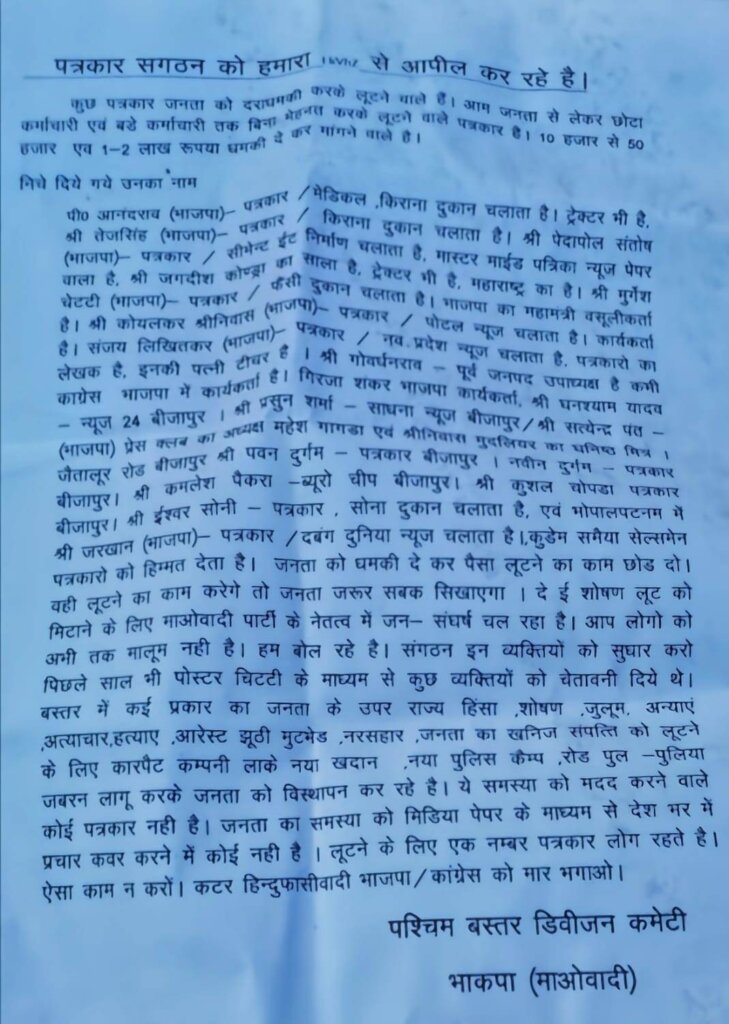 पत्रकार सगठन को हमारा से आपील कर रहे है।
कुछ पत्रकार जनता को दराधमकी करके लूटने वाले है। आम जनता से लेकर छोटा
कर्माचारी एवं बडे कर्माचारी तक बिना मेहनत करके लूटने वाले पत्रकार है। 10 हजार से 50
हजार एव 1-2 लाख रूपया धमकी दे कर मांगने वाले है।
निचे दिये गये उनका नाम
पी0 आनंदराव (भाजपा)– पत्रकार /मेडिकल ,किराना दुकान चलाता है। ट्रेक्टर भी है,
श्री तेजसिंह (भाजपा)– पत्रकार / किराना दुकान चलाता है। श्री पेदापोल संतोष
(भाजपा)– पत्रकार / सीमेन्ट ईट निर्माण चलाता है, मास्टर माईड पत्रिका न्यूज पेपर
वाला है, श्री जगदीश कोण्ड्रा का साला है, ट्रेक्टर भी है, महाराष्ट्र का है। श्री मुर्गेश
चेटटी (भाजपा)– पत्रकार / फैंसी दुकान चलाता है। भाजपा का महामंत्री वसूलीकर्ता
है। श्री कोयलकर श्रीनिवास (भाजपा)– पत्रकार / पोटल न्यूज चलाता है। कार्यकर्ता
है। संजय लिखितकर (भाजपा)– पत्रकार / नव प्रदेश न्यूज चलाता है, पत्रकारो का
लेखक है, इनकी पत्नी टीचर है । श्री गोवर्धनराव – पूर्व जनपद उपाध्यक्ष है कभी
काग्रेस भाजपा में कार्यकर्ता है। गिरजा शंकर भाजपा कार्यकर्ता, श्री घनश्याम यादव
– न्यूज 24 बीजापुर । श्री प्रसुन शर्मा – साधना न्यूज बीजापुर/श्री सत्येन्द्र पंत –
(भाजपा) प्रेस क्लब का अध्यक्ष महेश गागडा एवं श्रीनिवास मुदलियर का घनिष्ठ मित्र ।
जैतालूर रोड बीजापुर श्री पवन दुर्गम – पत्रकार बीजापुर । नवीन दुर्गम – पत्रकार
बीजापुर। श्री कमलेश पैकरा –ब्यूरो चीप बीजापुर। श्री कुशल चोपडा पत्रकार
बीजापुर। श्री ईश्वर सोनी – पत्रकार , सोना दुकान चलाता है, एवं भोपालपटनम में
श्री जरखान (भाजपा)– पत्रकार /दबंग दुनिया न्यूज चलाता है।,कुडेम समैया सेल्समेन
पत्रकारो को हिम्मत देता है। जनता को धमकी दे कर पैसा लूटने का काम छोड दो।
वही लूटने का काम करेगे तो जनता जरूर सबक सिखाएगा । दे ई शोषण लूट को
मिटाने के लिए माओवादी पार्टी के नेतत्व में जन– संघर्ष चल रहा है। आप लोगो को
अभी तक मालूम नही है। हम बोल रहे है। संगठन इन व्यक्तियों को सुधार करो
पिछले साल भी पोस्टर चिटटी के माध्यम से कुछ व्यक्तियों को चेतावनी दिये थे।
बस्तर में कई प्रकार का जनता के उपर राज्य हिंसा ,शोषण ,जुलूम, अन्याएं
,अत्याचार,हत्याए ,आरेस्ट झूठी मुटभेड ,नरसहार ,जनता का खनिज संपत्ति को लूटने
के लिए कारपैट कम्पनी लाके नया खदान ,नया पुलिस कैम्प ,रोड पुल –पुलिया
जबरन लागू करके जनता को विस्थापन कर रहे है। ये समस्या को मदद करने वाले
कोई पत्रकार नही है। जनता का समस्या को मिडिया पेपर के माध्यम से देश भर में
प्रचार कवर करने में कोई नही है । लूटने के लिए एक नम्बर पत्रकार लोग रहते है।
ऐसा काम न करों। कटर हिन्दुफासीवादी भाजपा/कांग्रेस को मार भगाओ।
पश्चिम बस्तर डिवीजन कमेटी
भाकपा (माओवादी)